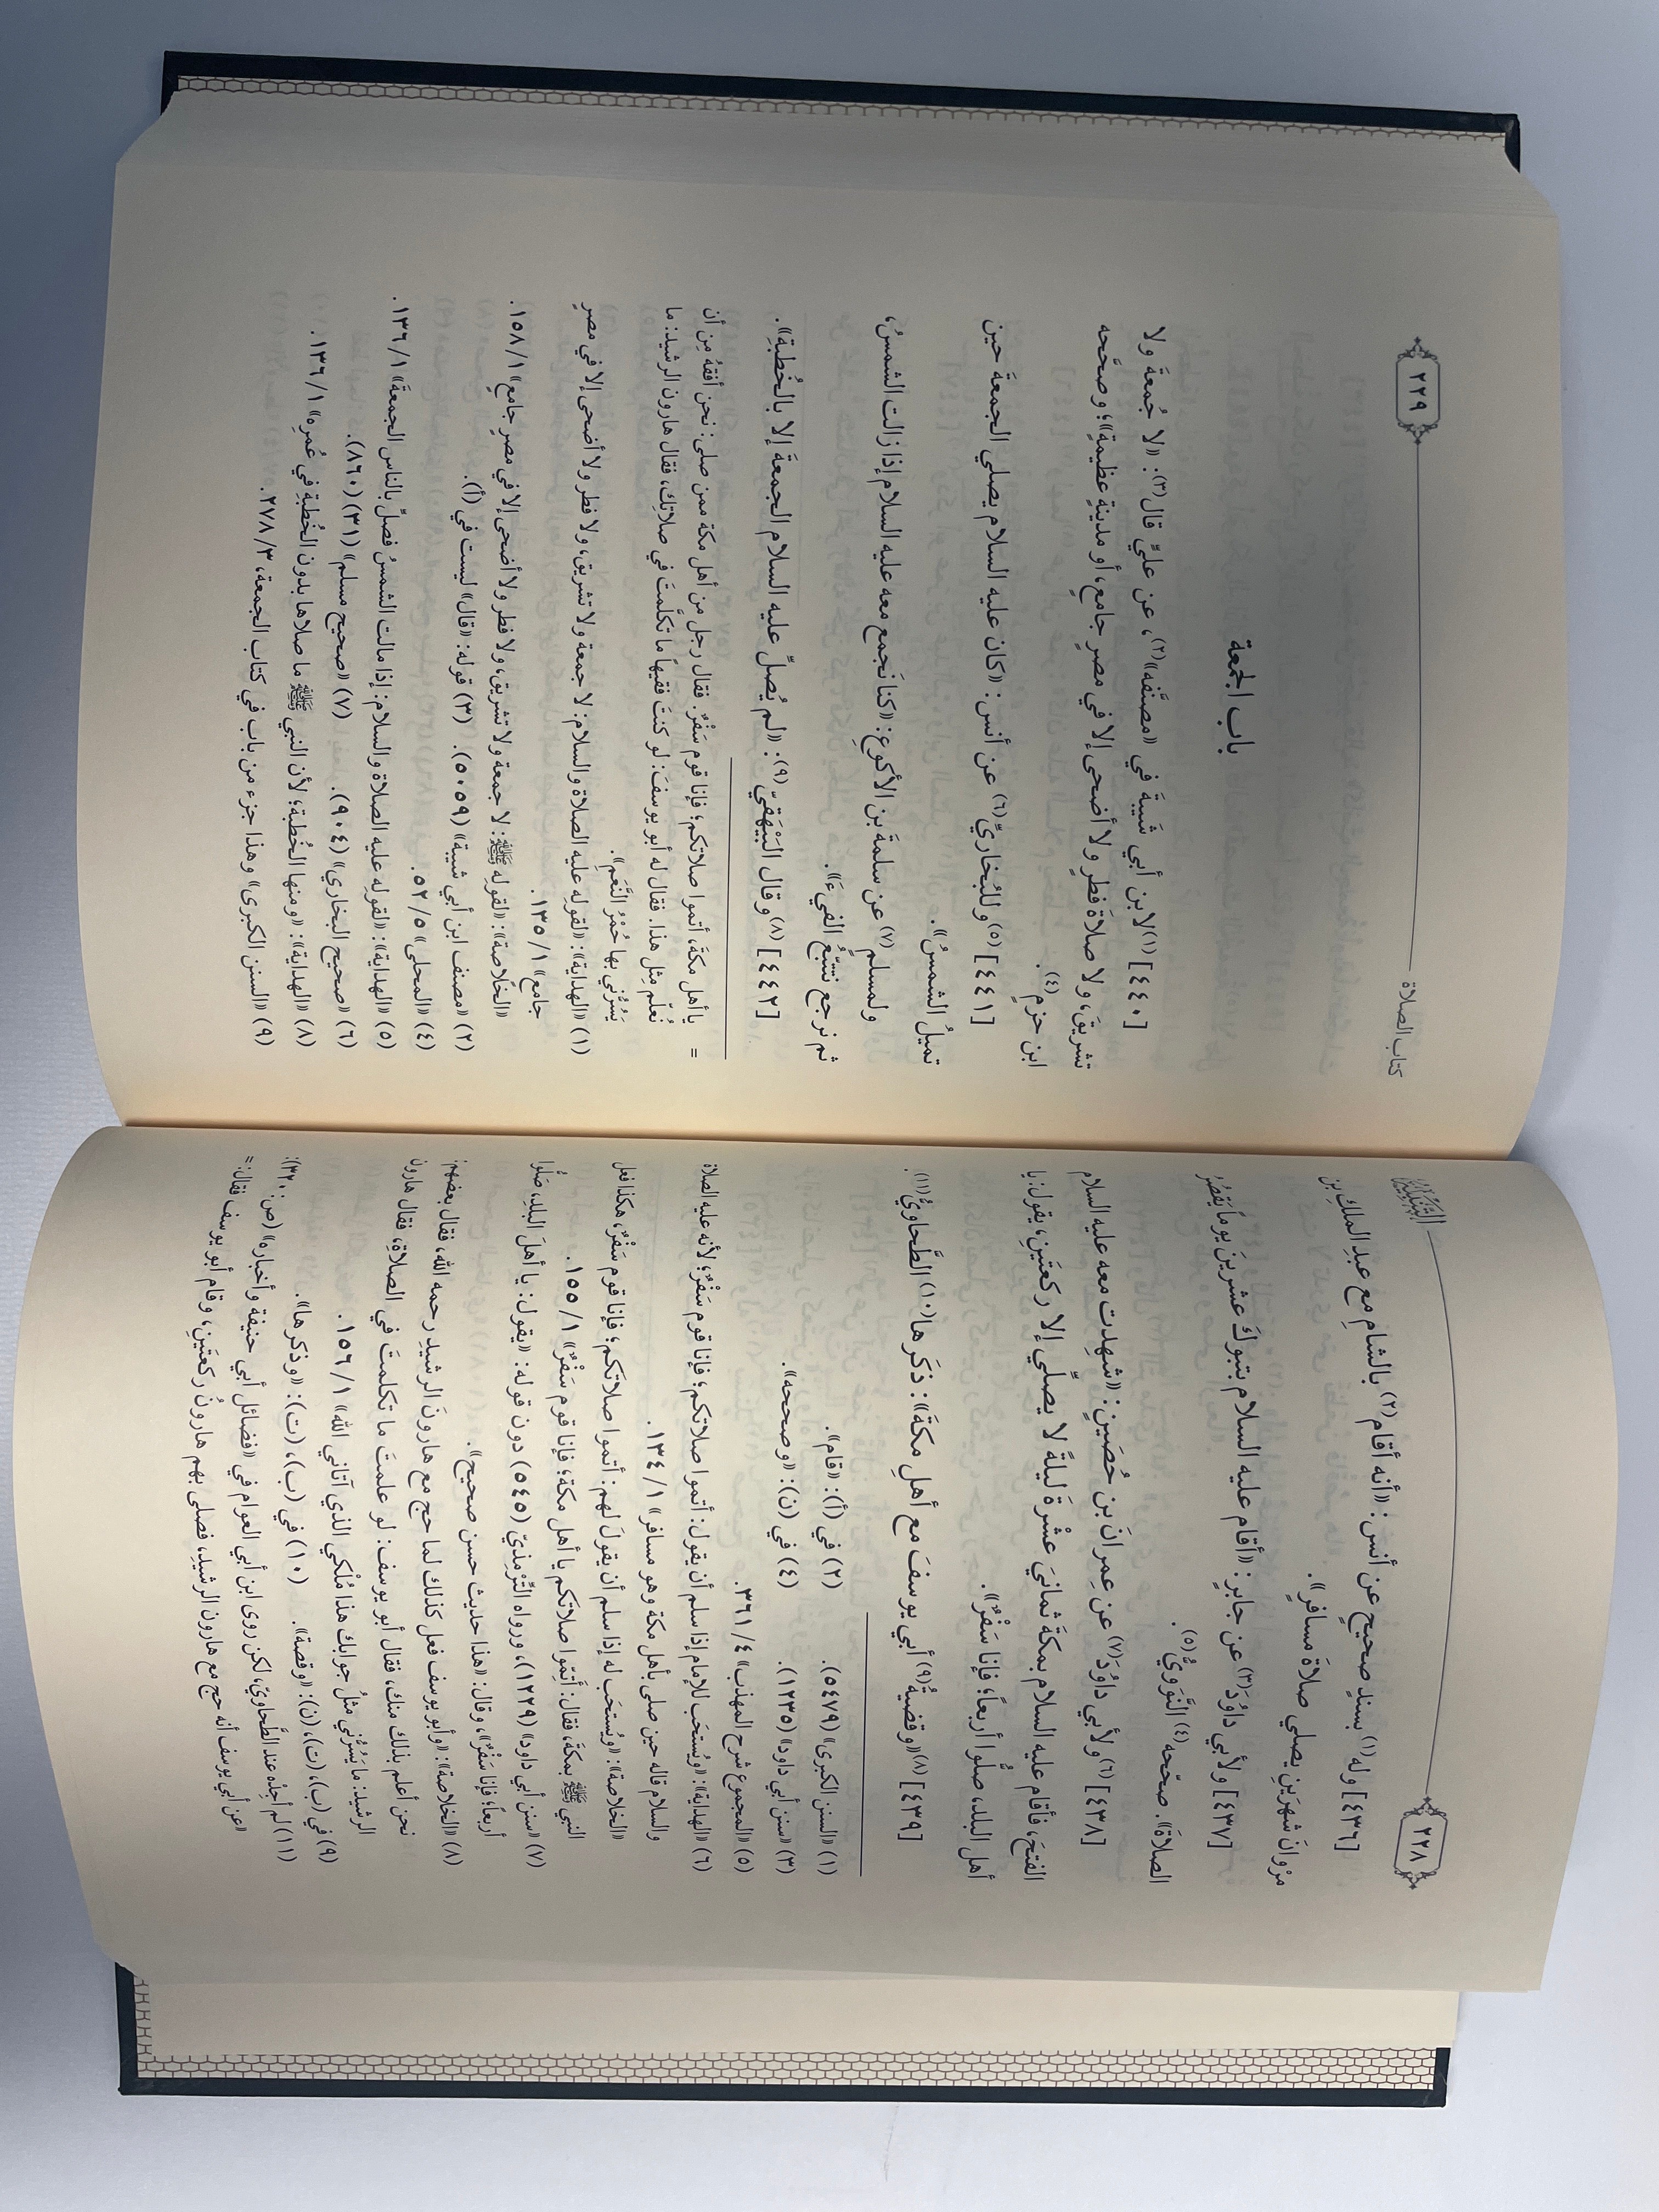 ٢٢٨
التَّنْبِيْه
[٤٣٦] وله(١) بسندٍ صحيحٍ عن أنس: «أنه أقام(٢) بالشام مع عبدِ الملكِ بنِ
مرْوانَ شهرَينِ يصلي صلاةَ مسافرٍ».
[٤٣٧] ولأبي داوُدَ(٣) عن جابرٍ: «أقام عليه السلام بتبوكَ عشرينَ يوماً يَقصُرُ
الصلاةَ». صحّحه(٤) النَّوَويُّ(٥).
[٤٣٨] (٦)ولأبي داوُدَ(٧) عن عِمرانَ بنِ حُصَينٍ: «شهِدت معه عليه السلام
الفتحَ، فأقام عليه السلام بمكةَ ثمانيَ عشْرةَ ليلةً لا يصلِّي إلا ركعتَينِ، يقول: يا
أهل البلد، صلُّوا أربعاً، فإنا سَفْرٌ».
[٤٣٩] (٨)«وقضيةُ(٩) أبي يوسفَ مع أهلِ مكةَ»: ذكَرها(١٠) الطَّحاويُّ(١١).
(١) «السنن الكبرى» (٥٤٧٩). (٢) في (أ): «قام».
(٣) «سنن أبي داود» (١٢٣٥). (٤) في (ن): «وصححه».
(٥) «المجموع شرح المهذب» ٤/ ٣٦١.
(٦) «الهداية»: «ويُستحَب للإمام إذا سلم أن يقول: أتموا صلاتكم؛ فإنا قوم سَفْرٌ؛ لأنه عليه الصلاة
والسلام قاله حين صلى بأهل مكة وهو مسافر» ١/ ١٣٤.
«الخلاصة»: «ويُستحَب له إذا سلم أن يقولَ لهم: أتموا صلاتكم؛ فإنا قوم سَفْرٌ، هكذا فعل
النبي ﷺ بمكةَ، فقال: أتِمّوا صلاتكم يا أهل مكة؛ فإنا قوم سَفْرٌ» ١/ ١٥٥.
(٧) «سنن أبي داود» (١٢٢٩)، ورواه التِّرْمذيّ (٥٤٥) دون قوله: «يقول: يا أهلَ البلدِ، صَلُّوا
أربعاً؛ فإنا سَفْرٌ»، وقال: «هذا حديث حسن صحيح».
(٨) «الخلاصة»: «وأبو يوسف فعل كذلك لما حج مع هارونَ الرشيدِ رحمه الله، فقال بعضهم:
نحن أعلم بذلك منك، فقال أبو يوسف: لو علمتَ ما تكلمتَ في الصلاةِ، فقال هارون
الرشيد: ما يَسُرُّني مثلُ جوابك هذا مُلْكي الذي آتاني الله» ١/ ١٥٦.
(٩) في (ب)، (ت)، (ن): «وقصة». (١٠) في (ب)، (ت): «وذكرها».
(١١) لم أجِدْه عند الطَّحاويّ، لكن روى ابن أبي العوام في «فضائل أبي حنيفة وأخباره» (ص: ٣٢٠):
«عن أبي يوسف أنه حج مع هارون الرشيدِ، فصلى بهم هارونُ ركعتَينِ، وقام أبو يوسف فقال: =
كتاب الصلاة
٢٢٩
باب الجمعة
[٤٤٠] (١)لابن أبي شَيبةَ في «مصنَّفه»(٢)، عن عليٍّ قال(٣): «لا جُمعةَ ولا
تشريقَ، ولا صلاةَ فطرٍ ولا أضحى إلا في مصرٍ جامعٍ، أو مدينةٍ عظيمةٍ»؛ وصحَّحه
ابن حزمٍ(٤).
[٤٤١] (٥)وللبُخاريِّ(٦) عن أنس: «كان عليه السلام يصلي الجمعةَ حين
تميلُ الشمسُ».
ولمسلمٍ(٧) عن سلمةَ بنِ الأكوعِ: «كنا نَجمع معه عليه السلام إذا زالت الشمسُ،
ثم نرجع نَتتبَّعُ الفيءَ».
[٤٤٢] (٨)وقال البَيْهَقيّ(٩): «لم يُصلِّ عليه السلام الجمعةَ إلا بالخُطبةِ».
= يا أهل مكةَ، أتموا صلاتكم؛ فإنا قوم سَفْرٌ. فقال رجل من أهل مكة ممن صلى: نحن أفقهُ مِن أن
نُعلَّم مِثل هذا. فقال له أبو يوسفَ: لو كنتَ فقيهاً ما تكلَّمتَ في صلاتِك، فقال هارون الرشيد: ما
يَسُرُّني بها حُمْرُ النَّعَمِ».
(١) «الهداية»: «لقولِه عليه الصلاة والسلام: لا جمعة ولا تشريق، ولا فطر ولا أضحى إلا في مصرٍ
جامع» ١/ ١٣٥.
«الخلاصة»: «لقوله ﷺ: لا جمعة ولا تشريق، ولا فطر ولا أضحى إلا في مصرٍ جامعٍ» ١/ ١٥٨.
(٢) «مصنف ابن أبي شيبة» (٥٠٥٩). (٣) قوله: «قال» ليست في (أ).
(٤) «المحلى» ٥/ ٥٢.
(٥) «الهداية»: «لقولِه عليه الصلاة والسلام: إذا مالت الشمسُ فصلِّ بالناس الجمعةَ» ١/ ١٣٦.
(٦) «صحيح البخاري» (٩٠٤). (٧) «صحيح مسلم» (٣١) (٨٦٠).
(٨) «الهداية»: «ومنها الخُطبة؛ لأن النبي ﷺ ما صلاها بدون الخُطبةِ في عُمرِه» ١/ ١٣٦.
(٩) «السنن الكبرى» وهذا جزء من باب في كتاب الجمعة، ٣/ ٢٧٨.